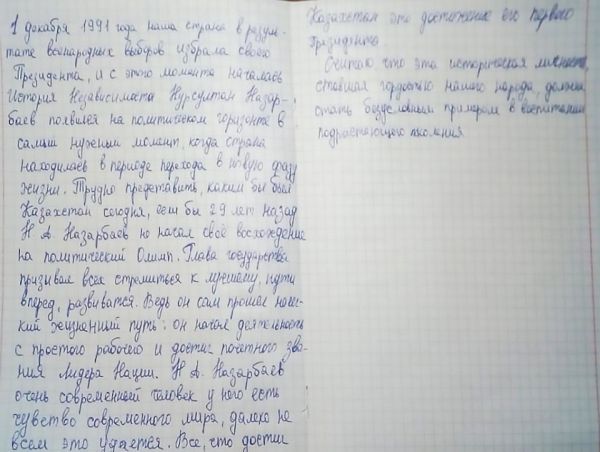 1 декабря 1991 года наша страна в резуль-
тате всенародных выборов избрала своего
Президента, и с этого момента началась
История Независимости Нурсултан Назар-
баев появился на политическом горизонте в
самый нужный момент, когда страна
находилась в периоде перехода в новую фазу
жизни. Трудно представить, каким бы был
Казахстан сегодня, если бы 29 лет назад
Н А. Назарбаев не начал своё восхождение
на политический Олимп. Глава государства
призывал всех стремиться к лучшему, идти
вперед, развиватся. Ведь он сам прошел нелег-
кий жизненный путь: он начал деятельность
с простого рабочего и достиг почетного зва-
ния Лидера Нации. Н А. Назарбаев
очень современный человек у него есть
чувство современного мира, далеко не
всем это удается. Все, что достиг
Казахстан это достожение его первого
Президента.
Считаю что эта историческая личность,
ставшая гордостью нашего народа, должна
стать безусловным примером в воспитании
подрастающего поколения